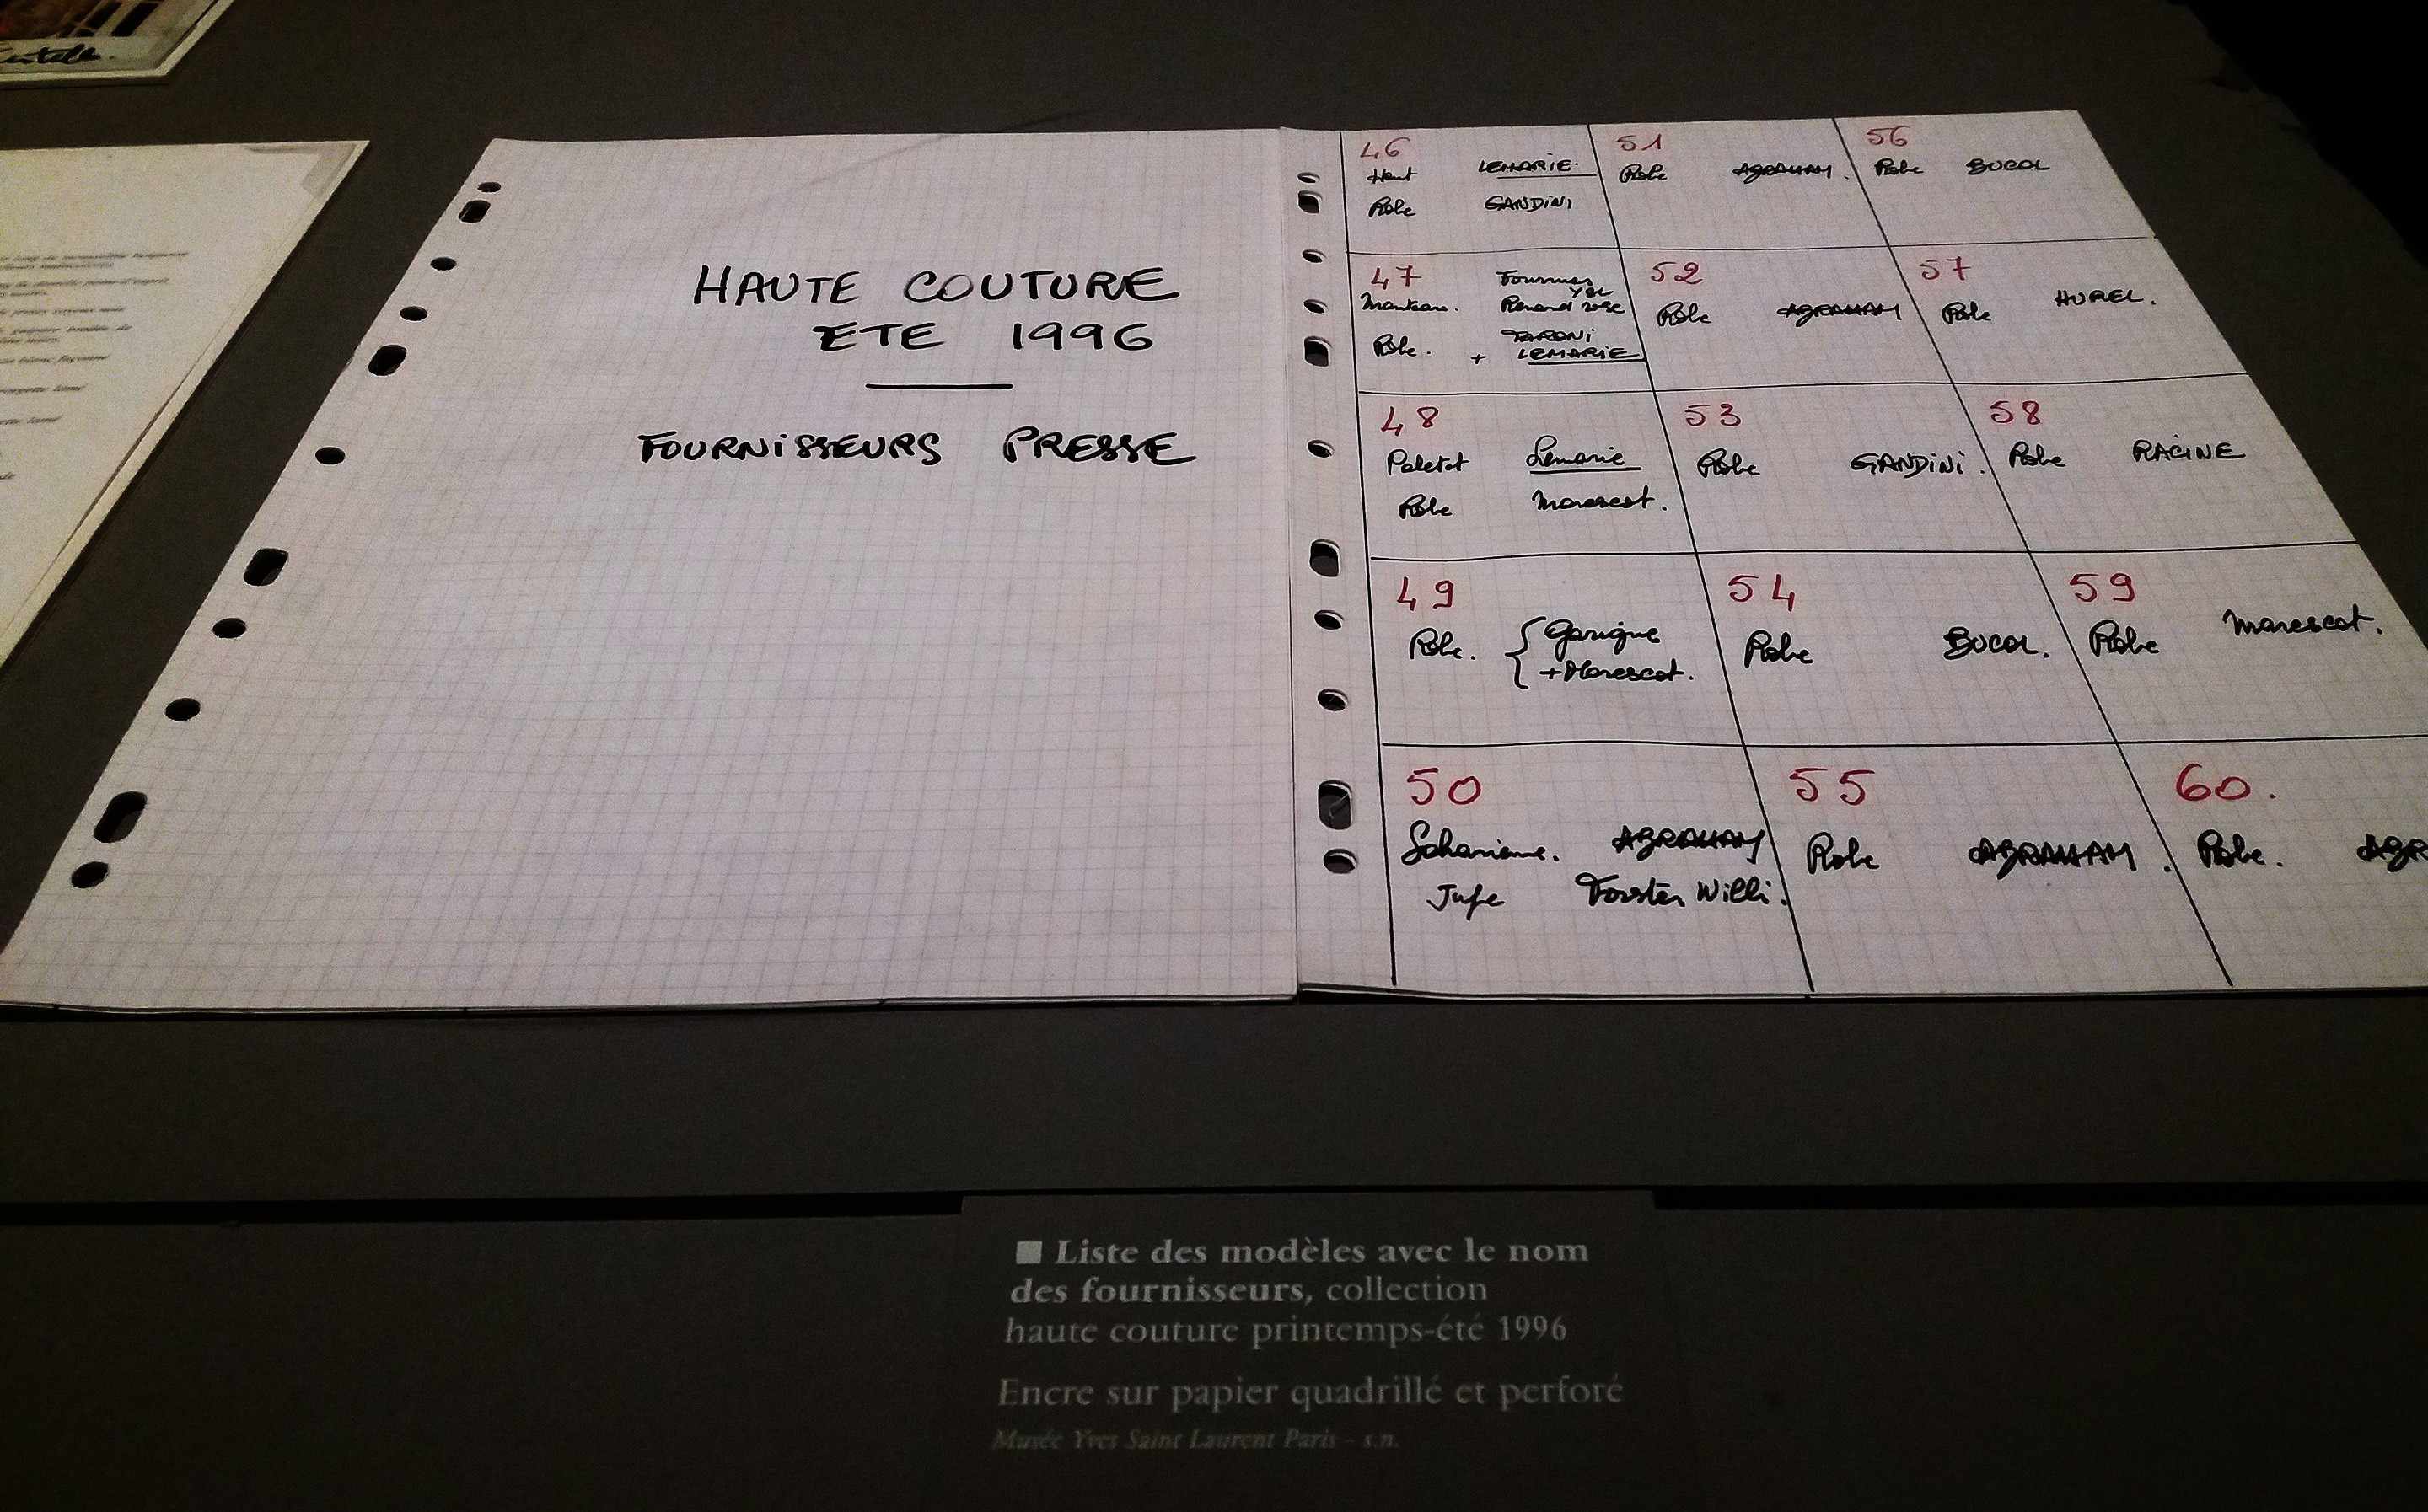 HAUTE COUTURE
ETE 1996
FOURNISSEURS PRESSE
46
Haut LEMARIE.
Robe GANDINI
47
Manteau. Fourrures
YSL
Renard rose
Robe. TARONI
+ LEMARIE
48
Paletot Lemarie
Robe Marescot.
49
Robe. { Garigue
+ Marescot.
50
Saharienne. ABRAHAM
Jupe Forster Willi.
51
Robe ABRAHAM.
52
Robe ABRAHAM
53
Robe GANDINI.
54
Robe BUCOL.
55
Robe ABRAHAM.
56
Robe BUCOL
57
Robe HUREL.
58
Robe RACINE
59
Robe Marescot.
60.
Robe. ABR
■ Liste des modèles avec le nom
des fournisseurs, collection
haute couture printemps-été 1996
Encre sur papier quadrillé et perforé
Musée Yves Saint Laurent Paris – s.n.